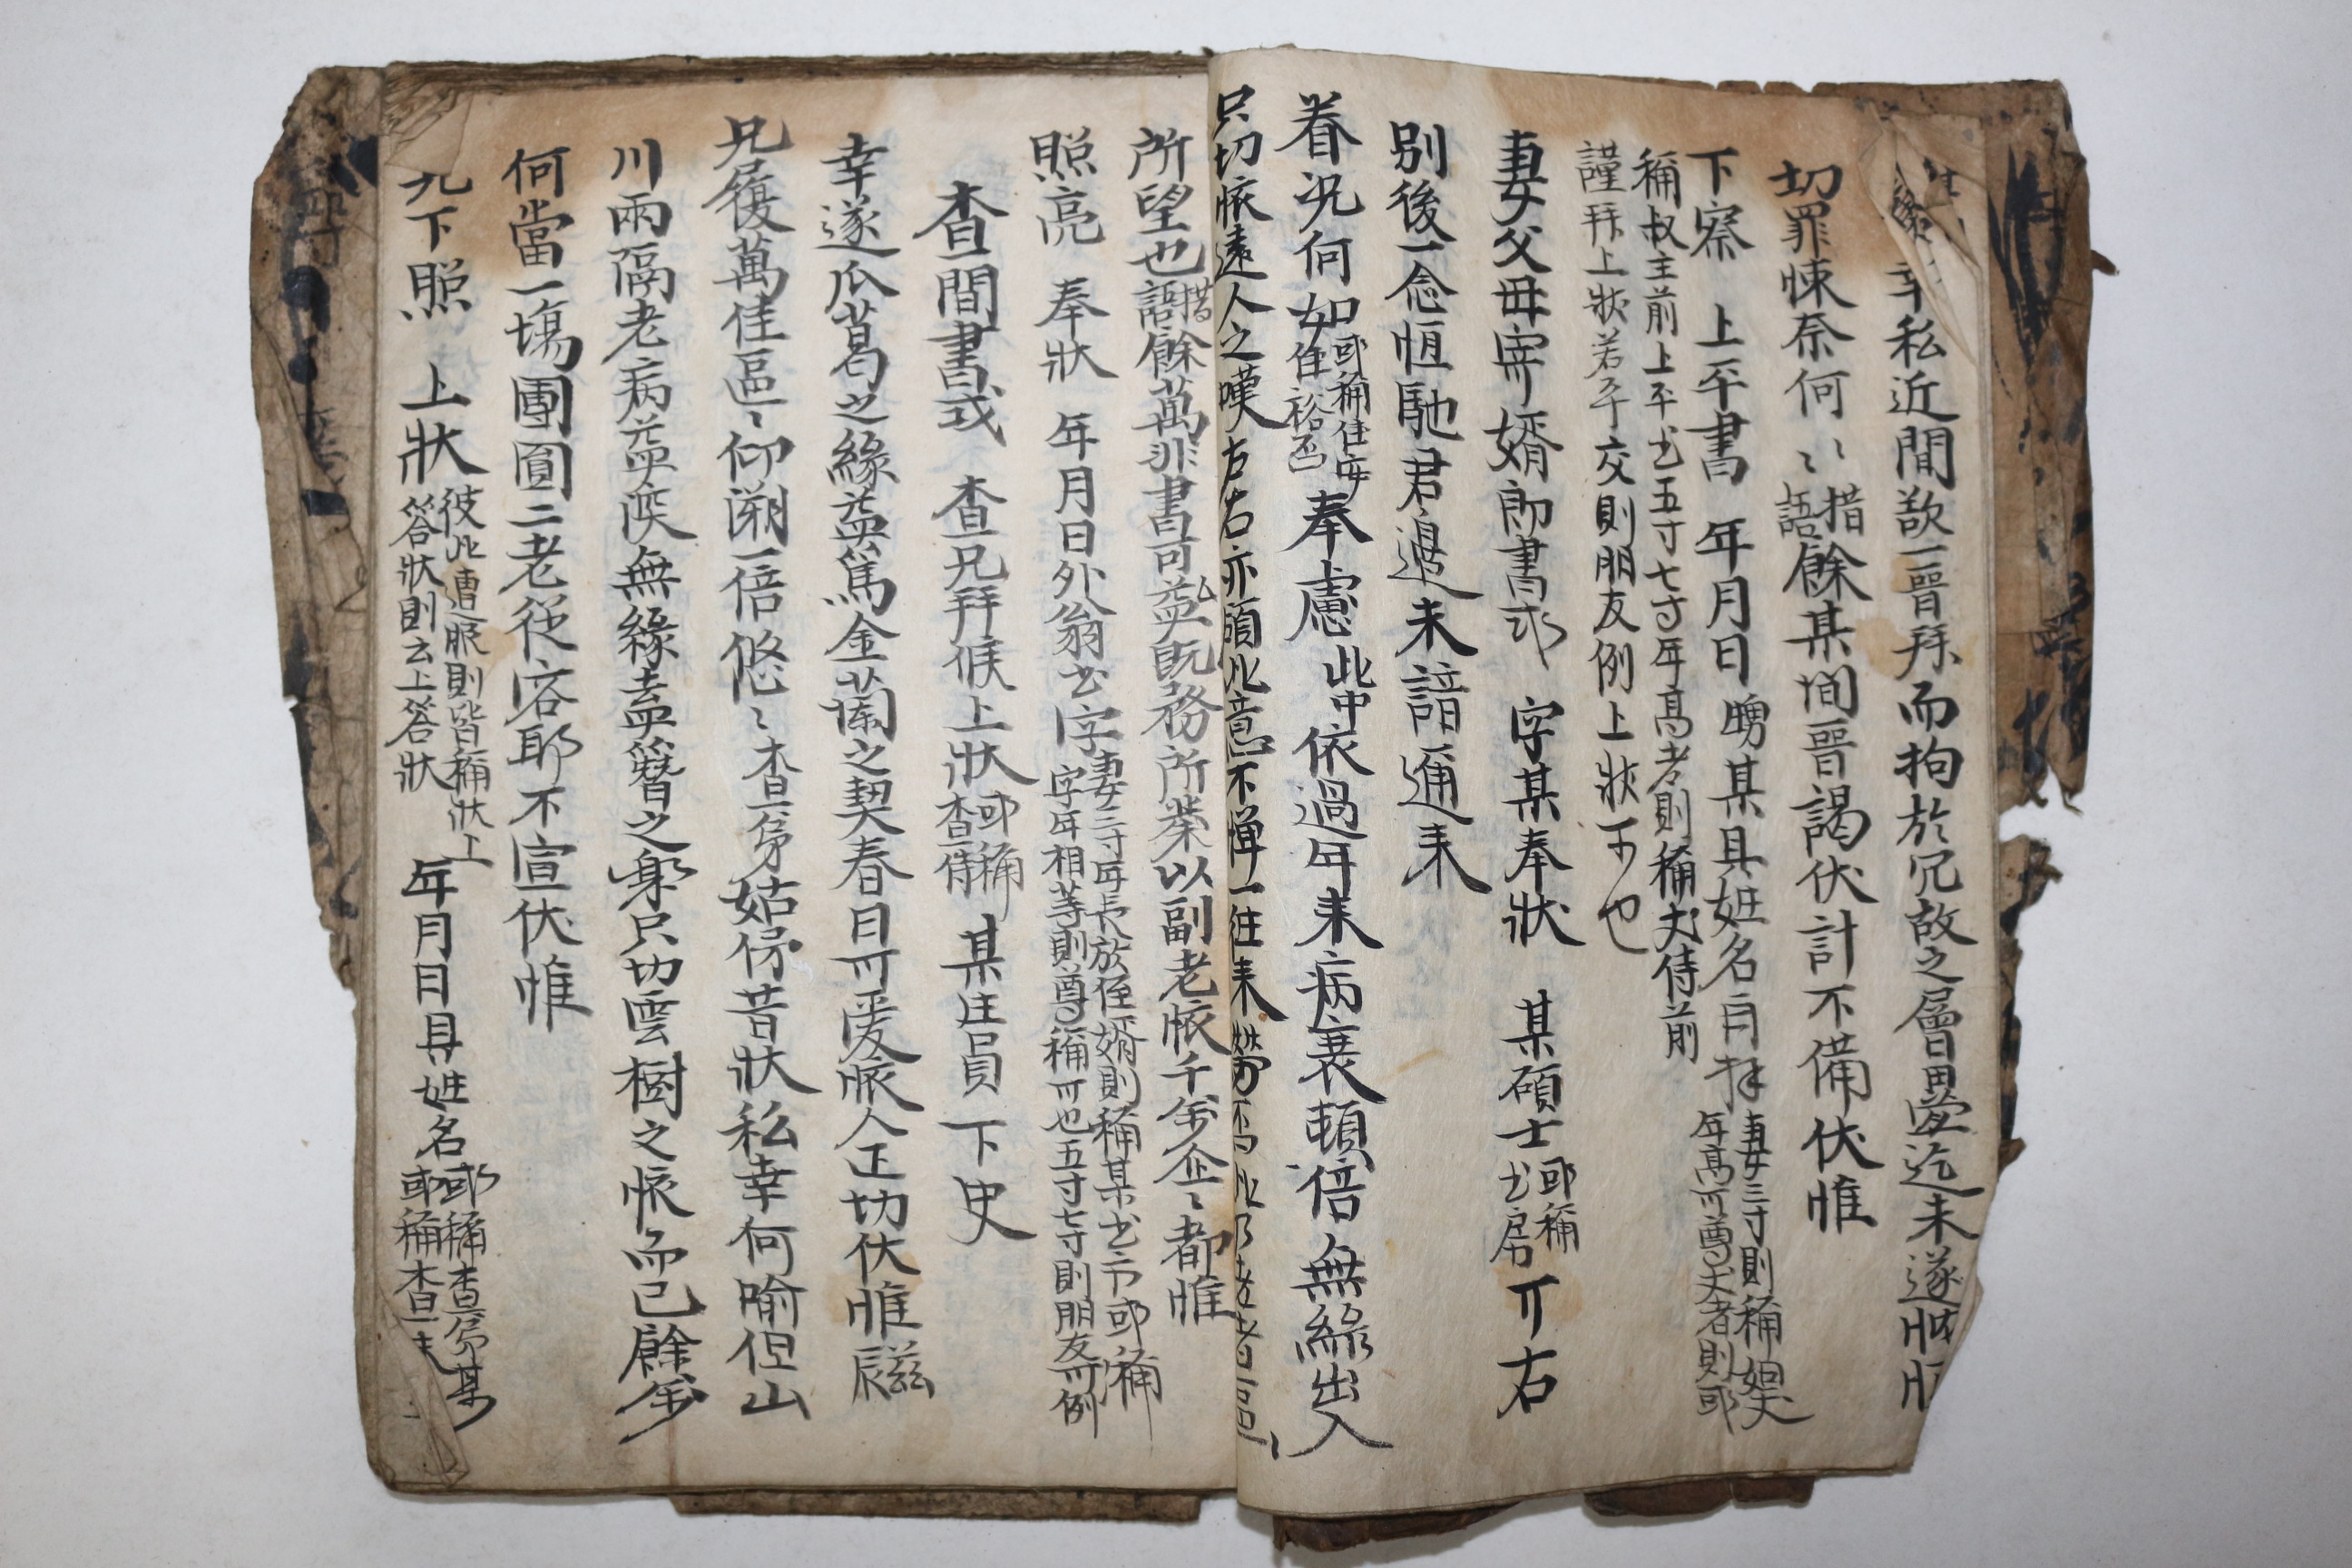 幸私近間欲一晉拜而拘於冗故之層疊迄未遂
切罪悚奈何〻措語餘某間晉謁伏計不備伏惟
下察 上平書 年月日 甥某具姓名再拜妻三寸則稱姻丈年高可尊丈者則或
稱叔主前上平书五寸七寸年高者則稱丈侍前
謹拜上狀若平交則朋友例上狀可也
妻父母寄婿郎書式 字某奉狀 某碩士或稱书房 丌右
別後一念恒馳君邊未諳邇來
眷况何如或稱住安住裕否奉慮此中依過年来病衰頓倍無緣出入
只切悵遠人之嘆左右亦領此意不憚一往来
所望也措語餘萬非書可旣務所業以副老悵千万企〻都惟
照亮 奉狀 年月日外翁书字妻三寸年長於侄婿則稱某书而或稱
字年相等則尊稱可也五寸七寸則朋友可例
査間書式 査兄拜候上狀或稱査侍 某生員 下史
幸遂瓜葛之緣益篤金蘭之契春日可愛悵人正切伏惟玆辰
兄履萬佳區〻仰溯一倍悠〻査弟姑保昔狀私幸何喩但山
川兩隔老病益深無緣盍簪之期只切雲樹之悵而已餘万
何當一塲團圓二老從容耶不宣伏惟
兄下照 上狀彼此遭服則皆稱狀上答狀則云上答狀 年月日具姓名或稱査弟某或稱査